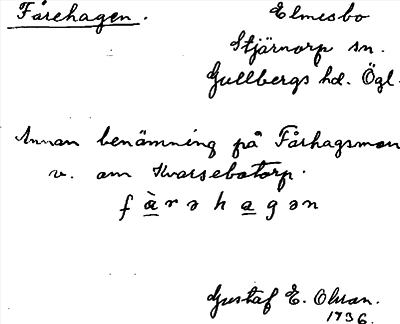 Fårehagen.
Elmesbo
Stjärnorp sn.
Gullbergs hd. Ögl.
Annan benämning på Fårhagsmon
v. om Kvarsebotorp.
f à r ə h a g ə n
Gustaf E. Olsson.
1936.